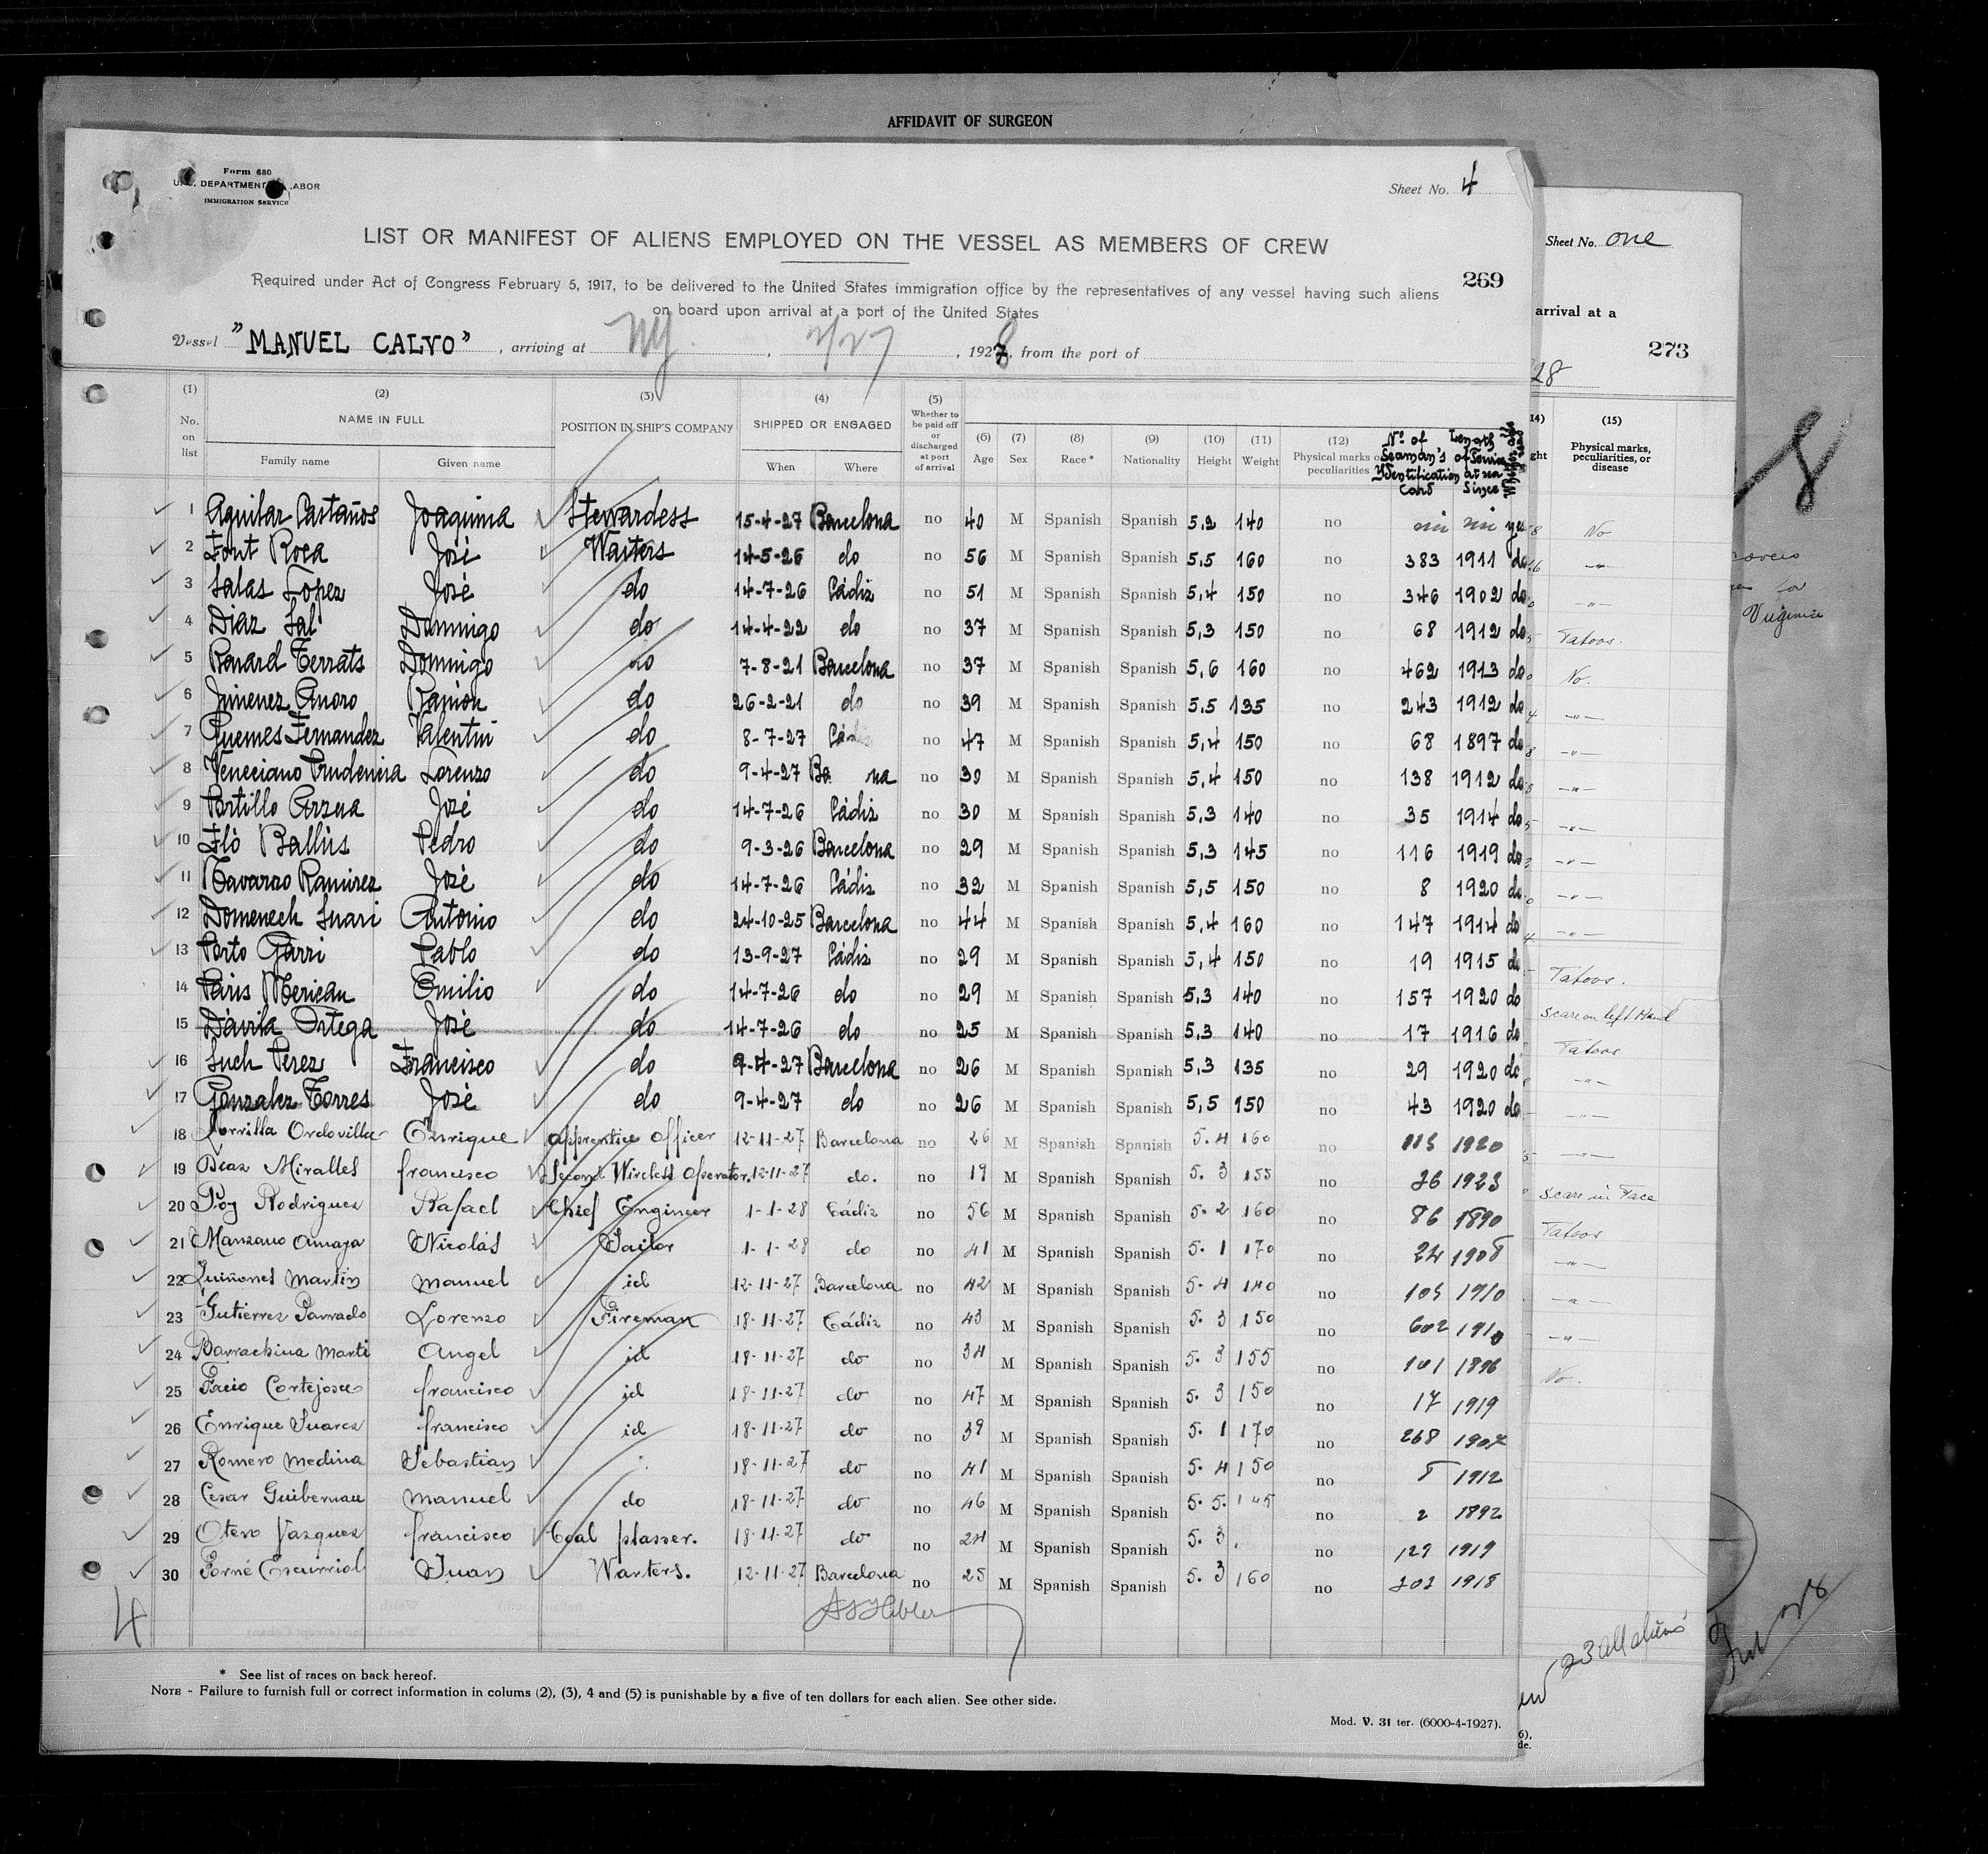 AFFIDAVIT OF SURGEON
Form 680
U.S. DEPARTMENT LABOR
IMMIGRATION SERVICE
Sheet No. 4
LIST OR MANIFEST OF ALIENS EMPLOYED ON THE VESSEL AS MEMBERS OF CREW
Required under Act of Congress February 5, 1917, to be delivered to the United States immigration office by the representatives of any vessel having such aliens
269
on board upon arrival at a port of the United States
Vessel "MANUEL CALVO", arriving at NY. , 2/27 , 1928, from the port of
(1) No. on list
(2) NAME IN FULL Family name Given name
(3) POSITION IN SHIP'S COMPANY
(4) SHIPPED OR ENGAGED When Where
(5) Whether to be paid off or discharged at port of arrival
(6) Age (7) Sex (8) Race * (9) Nationality (10) Height (11) Weight (12) Physical marks or peculiarities
Nº. of Seaman's Ydentification Card
Length of Service at sea Since
1 Aguilar Castaños Joaquina Stewardess 15-4-27 Barcelona no 40 M Spanish Spanish 5,2 140 no ni ni yes
2 Font Roca José Waiters 14-5-26 do no 56 M Spanish Spanish 5,5 160 no 383 1911 do
3 Salas Lopez José do 14-7-26 Cádiz no 51 M Spanish Spanish 5,4 150 no 346 1902 do
4 Diaz Sal Domingo do 14-4-22 do no 37 M Spanish Spanish 5,3 150 no 68 1912 do
5 Ronard Terrats Domingo do 7-8-21 Barcelona no 37 M Spanish Spanish 5,6 160 no 462 1913 do
6 Jimenez Anoro Ramón do 26-2-21 do no 39 M Spanish Spanish 5,5 135 no 243 1912 do
7 Guemes Fernandez Valentin do 8-7-27 Cádiz no 47 M Spanish Spanish 5,4 150 no 68 1897 do
8 Veneciano Prudencia Lorenzo do 9-4-27 Ba na no 30 M Spanish Spanish 5,4 150 no 138 1912 do
9 Portillo Arzua José do 14-7-26 Cádiz no 30 M Spanish Spanish 5,3 140 no 35 1914 do
10 Fló Ballús Pedro do 9-3-26 Barcelona no 29 M Spanish Spanish 5,3 145 no 116 1919 do
11 Navarro Ramirez José do 14-7-26 Cádiz no 32 M Spanish Spanish 5,5 150 no 8 1920 do
12 Domenech Suari Antonio do 24-10-25 Barcelona no 44 M Spanish Spanish 5,4 160 no 147 1914 do
13 Porto Garri Pablo do 13-9-27 Cádiz no 29 M Spanish Spanish 5,4 150 no 19 1915 do
14 Paris Merican Emilio do 14-7-26 do no 29 M Spanish Spanish 5,3 140 no 157 1920 do
15 Dávila Ortega José do 14-7-26 do no 25 M Spanish Spanish 5,3 140 no 17 1916 do
16 Such Perez Francisco do 9-4-27 Barcelona no 26 M Spanish Spanish 5,3 135 no 29 1920 do
17 Gonzalez Torres José do 9-4-27 do no 26 M Spanish Spanish 5,5 150 no 43 1920 do
18 Enrique apprentice officer 12-11-27 Barcelona no 26 M Spanish Spanish 5.4 160 no 113 1920
19 Diaz Miralles francisco Second Wireless Operator. 12-11-27 do. no 19 M Spanish Spanish 5.3 155 no 26 1923
20 Poy Rodriguez Rafael Chief Engineer 1-1-28 Cádiz no 56 M Spanish Spanish 5.2 160 no 86 1890
21 Manzano Amaya Nicolás Sailor 1-1-28 do no 41 M Spanish Spanish 5.1 170 no 24 1908
22 Quiñones Martin manuel id 12-11-27 Barcelona no 42 M Spanish Spanish 5.4 140 no 105 1910
23 Gutierrez Parrado Lorenzo Fireman 18-11-27 Cádiz no 43 M Spanish Spanish 5.3 150 no 602 1910
24 Barrachina Marti Angel id 18-11-27 do no 34 M Spanish Spanish 5.3 155 no 101 1896
25 Pacio Cortejosa francisco id 18-11-27 do no 47 M Spanish Spanish 5.3 150 no 17 1919
26 Enrique Suarez francisco id 18-11-27 do no 39 M Spanish Spanish 5.1 170 no 268 1907
27 Romero medina Sebastian 18-11-27 do no 41 M Spanish Spanish 5.4 150 no 8 1912
28 Cesar Guibernau manuel do 18-11-27 do no 46 M Spanish Spanish 5.5. 145 no 2 1892
29 Otero Vazquez francisco Coal passer. 18-11-27 do no 24 M Spanish Spanish 5.3. no 129 1919
30 Forné Escurriol Juan Waiters. 12-11-27 Barcelona no 25 M Spanish Spanish 5.3 160 no 202 1918
4
* See list of races on back hereof.
NOTE - Failure to furnish full or correct information in colums (2), (3), 4 and (5) is punishable by a five of ten dollars for each alien. See other side.
Mod. V. 31 ter. (6000-4-1927).
Sheet No. one
arrival at a
273
28
(15)
Physical marks, peculiarities, or disease
No
Tatoos.
No.
Tatoos.
Scare on left Hand
Tatoos
Scare in Face
Tatoos
No.
23 all aliens
8
Virginia